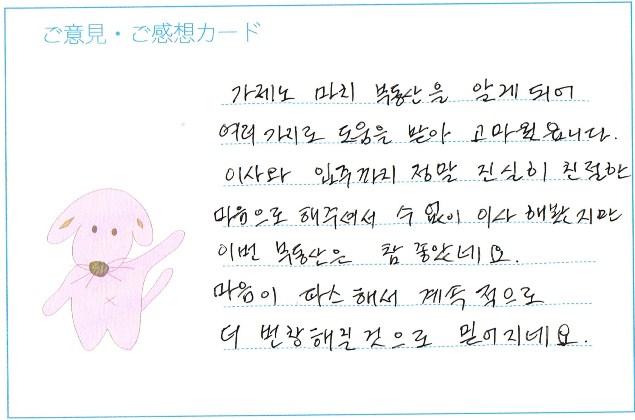 ご意見・ご感想カード
가제노 마리 부동산을 알게되어
여러가지로 도움을 받아 고마웠읍니다.
이사와 입주까지 정말 진실히 친절한
마음으로 해주셔서 수없이 이사 해봤지만
이번 부동산은 참 좋았네요.
마음이 따스해서 계속적으로
더 번창해질것으로 믿어지네요.